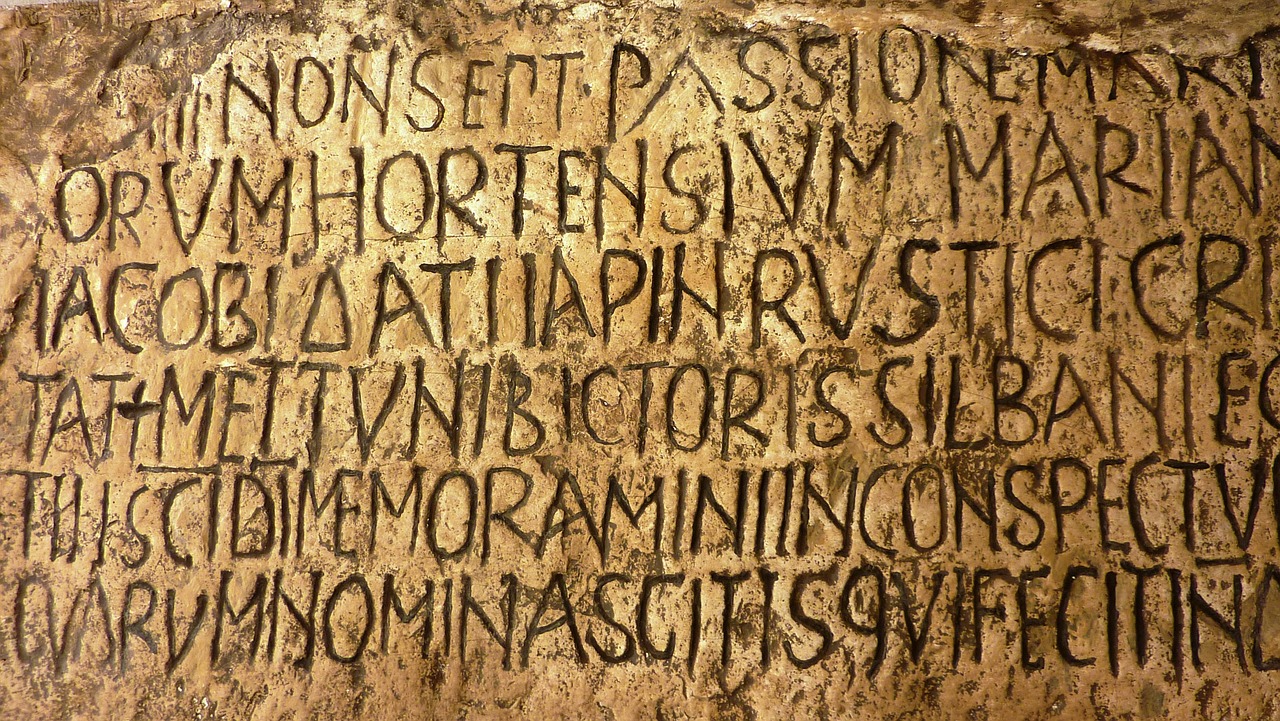 IIII NON SEPT PASSIONE MART
ORVM HORTENSIVM MARIAN
IACOBI DATI IAPIN RVSTICI CRI
TAT + METTVNI BICTORIS SILBANI EG
TII SCI DI MEMORAMINI IN CONSPECTV
CVARVM NOMINA SCITIS QVI FECIT IND